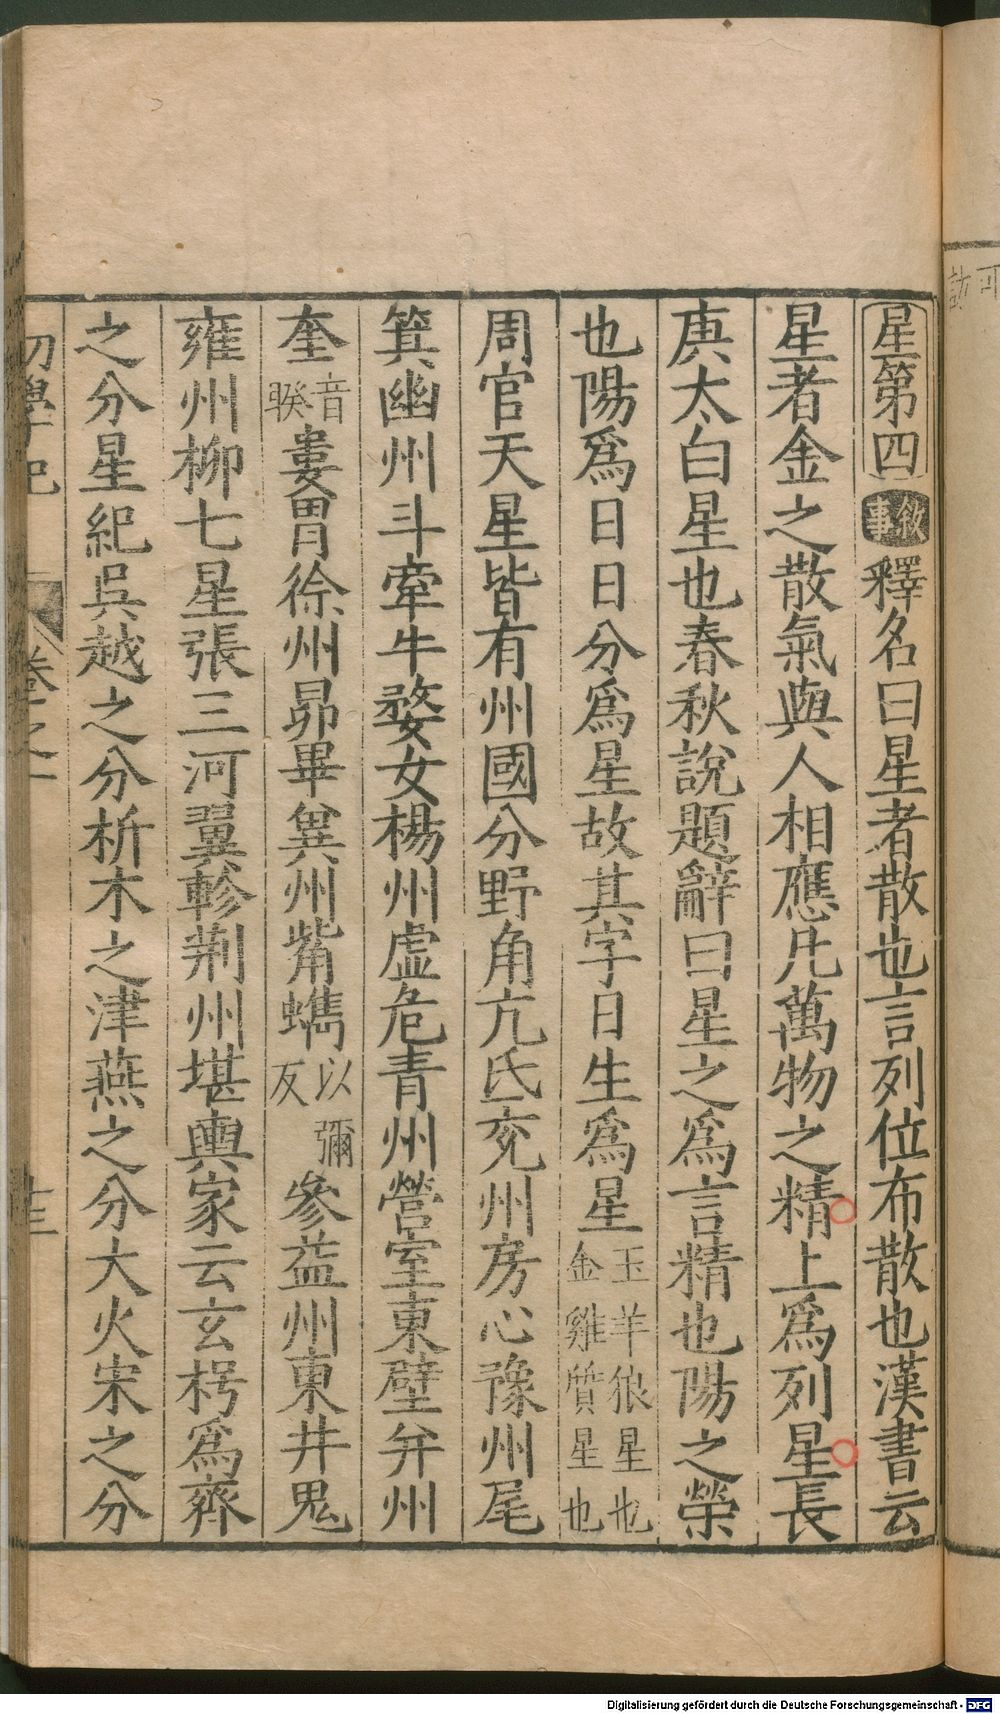 星第四 敘事 釋名曰星者散也言列位布散也漢書云
星者金之散氣與人相應凡萬物之精上爲列星長
庚太白星也春秋說題辭曰星之爲言精也陽之榮
也陽爲日日分爲星故其字日生爲星玉羊狼星也金雞質星也
周官天星皆有州國分野角亢氐兗州房心豫州尾
箕幽州斗牽牛婺女楊州虛危青州營室東壁并州
奎音睽婁胃徐州昴畢兾州觜蠵以彌反參益州東井鬼
雍州柳七星張三河翼軫荆州堪輿家云玄枵爲齊
之分星紀吳越之分析木之津燕之分大火宋之分
初學記 卷之一 十三
Digitalisierung gefördert durch die Deutsche Forschungsgemeinschaft - DFG